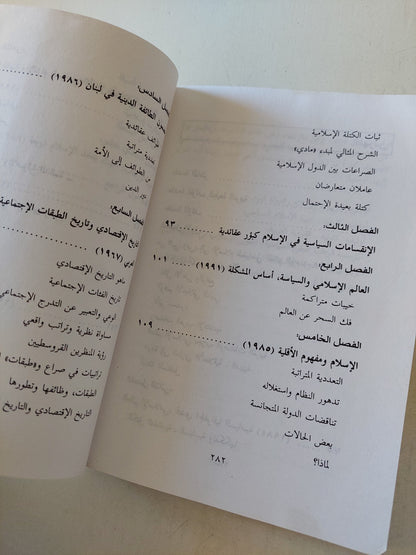 ثبات الكتلة الإسلامية
الشرح المثالي لمبدء «مادي»
الصراعات بين الدول الإسلامية
عاملان متعارضان
كتلة بعيدة الإحتمال
الفصل الثالث:
الإنقسامات السياسية في الإسلام كبؤر عقائدية ٩٣
الفصل الرابع:
العالم الإسلامي والسياسة، أساس المشكلة (١٩٩١) ........ ١٠١
خيبات متراكمة
فك السحر عن العالم
الفصل الخامس:
الإسلام ومفهوم الأقلية (١٩٨٥) .................... ١٠٩
التعددية المراتبة
تدهور النظام واستغلاله
تناقضات الدولة المتجانسة
بعض الحالات
لماذا؟
٢٨٢
السادس:
الطائفة الدينية في لبنان (١٩٨٦) ........
طوائف عقائدية
الطوائف إلى الأمة
الدين
السابع:
الإقتصادي وتاريخ الطبقات الإجتماعية
(١٩٦٧) ....................
ماهو التاريخ الإقتصادي
تاريخ الفئات الإجتماعية
الوعي والتعبير عن التدرج الإجتماعي
مساواة نظرية وتراتب واقعي
رؤية المنظرين القروسطيين
تراتبات في صراع و«طبقات»
الطبقات، وظائفها وتطورها
التاريخ الإقتصادي والتاريخ